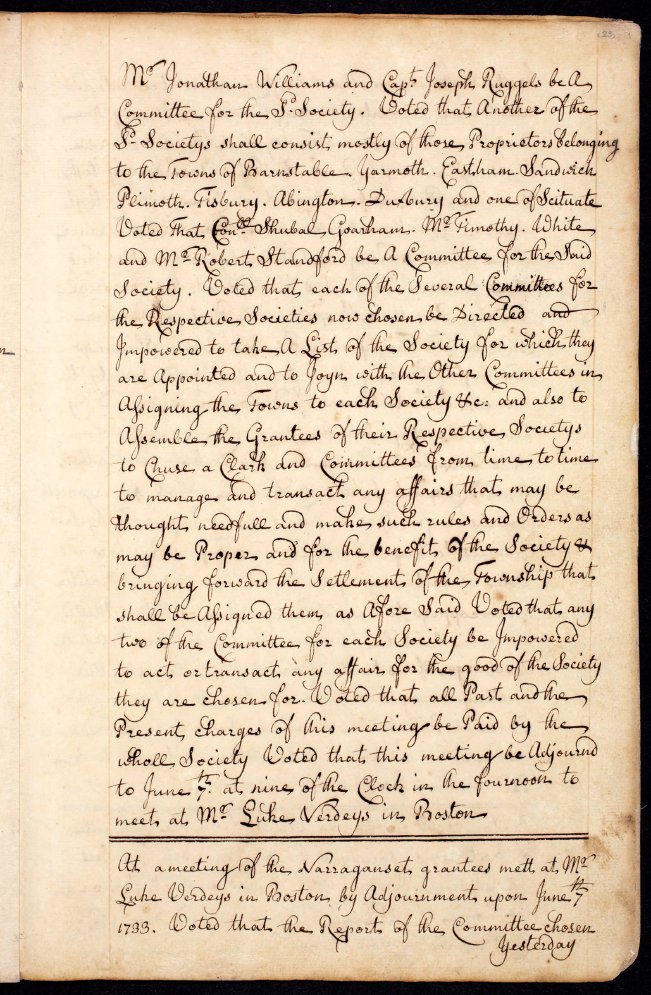 23
Mr. Jonathan Williams and Capt. Joseph Ruggels be A
Committee for the Sd. Society. Voted that Another of the
Sd. Societys shall consist mostly of those Proprietors belonging
to the Towns of Barnstable Yarmoth. Eastham. Sandwich
Plimoth. Tisbury. Abington. Duxbury and one of Scituate
Voted That Coll. Shubal Goarham. Mr. Timothy. White
and Mr. Robert Standford be A Committee for the Said
Society. Voted that each of the Several Committees for
the Respective Societies now chosen be Directed and
Impowered to take A List of the Society for which they
are Appointed and to Joyn with the Other Committees in
Assigning the Towns to each Society &c: and also to
Assemble the Grantees of their Respective Societys
to Chuse a Clark and Committees from time to time
to manage and transact any affairs that may be
thought needfull and make such rules and Orders as
may be Proper and for the benefit of the Society &
bringing forward the Setlement of the Township that
shall be Assigned them as Afore Said Voted that any
two of the Committee for each Society be Impowered
to act or transact any affair for the good of the Society
they are chosen for. Voted that all Past and the
Present charges of this meeting be Paid by the
wholl Society Voted that this meeting be Adjournd
to June 7th. at nine of the Clock in the fournoon to
meet at Mr. Luke Verdeys in Boston
At a meeting of the Narraganset grantees mett at Mr.
Luke Verdeys in Boston by Adjournment upon June 7th
1733. Voted that the Report of the Committee chosen
Yesterday